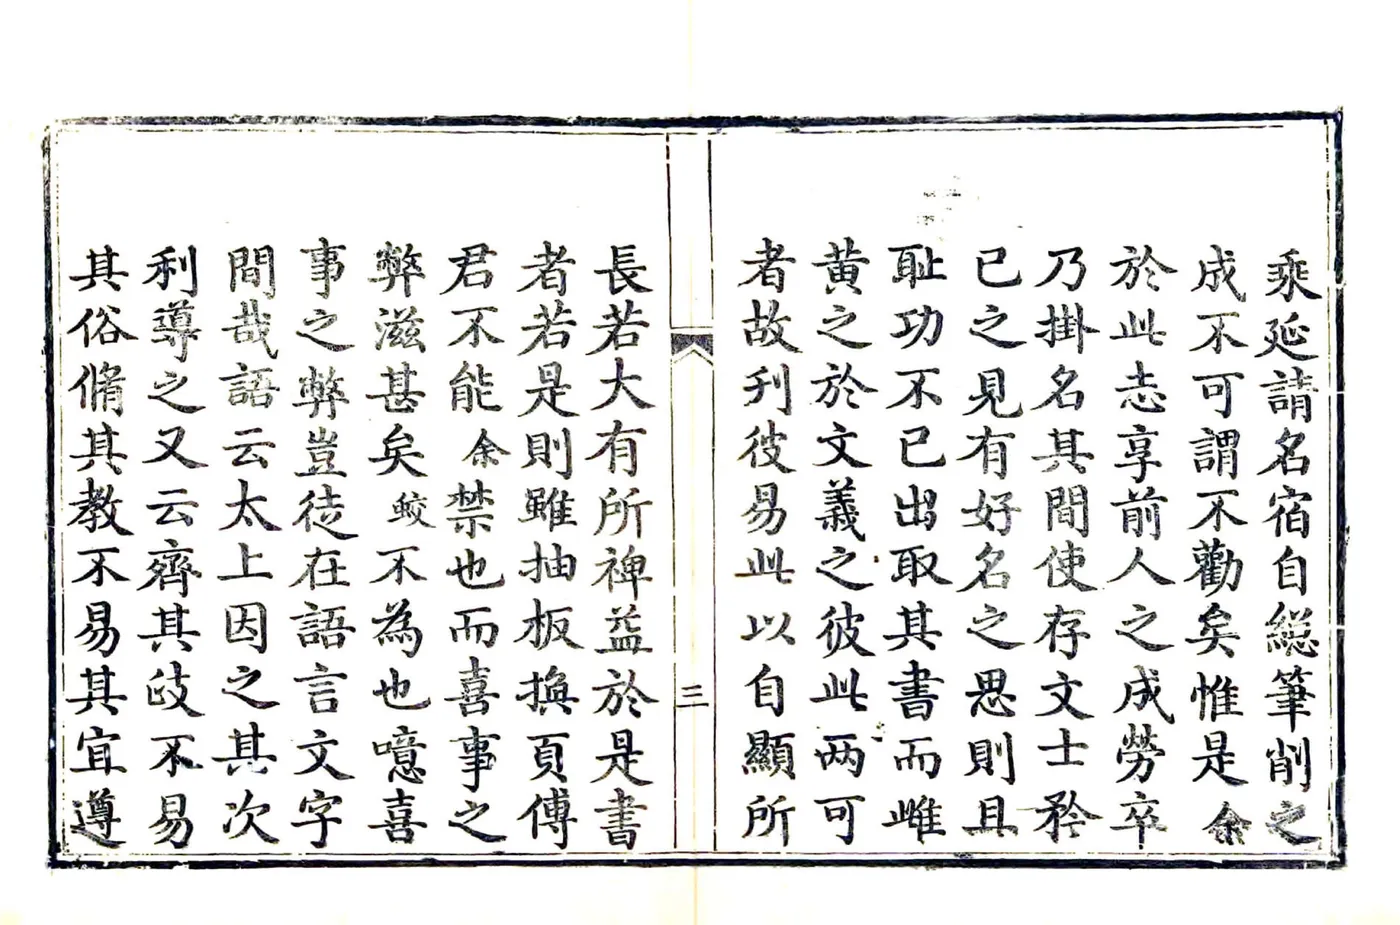 乘延請名宿自緫筆削之
成不可謂不勸矣惟是余
於此志享前人之成勞卒
乃掛名其間使存文士矜
已之見有好名之思則且
耻功不已出取其書而雌
黄之於文義之彼此两可
者故刋彼易此以自顯所
三
長若大有所裨益於是書
者若是則雖抽板換頁傅
君不能余禁也而喜事之
弊滋甚矣鮫不為也噫喜
事之弊豈徒在語言文字
間哉語云太上因之其次
利導之又云齊其歧不易
其俗脩其教不易其宜遵